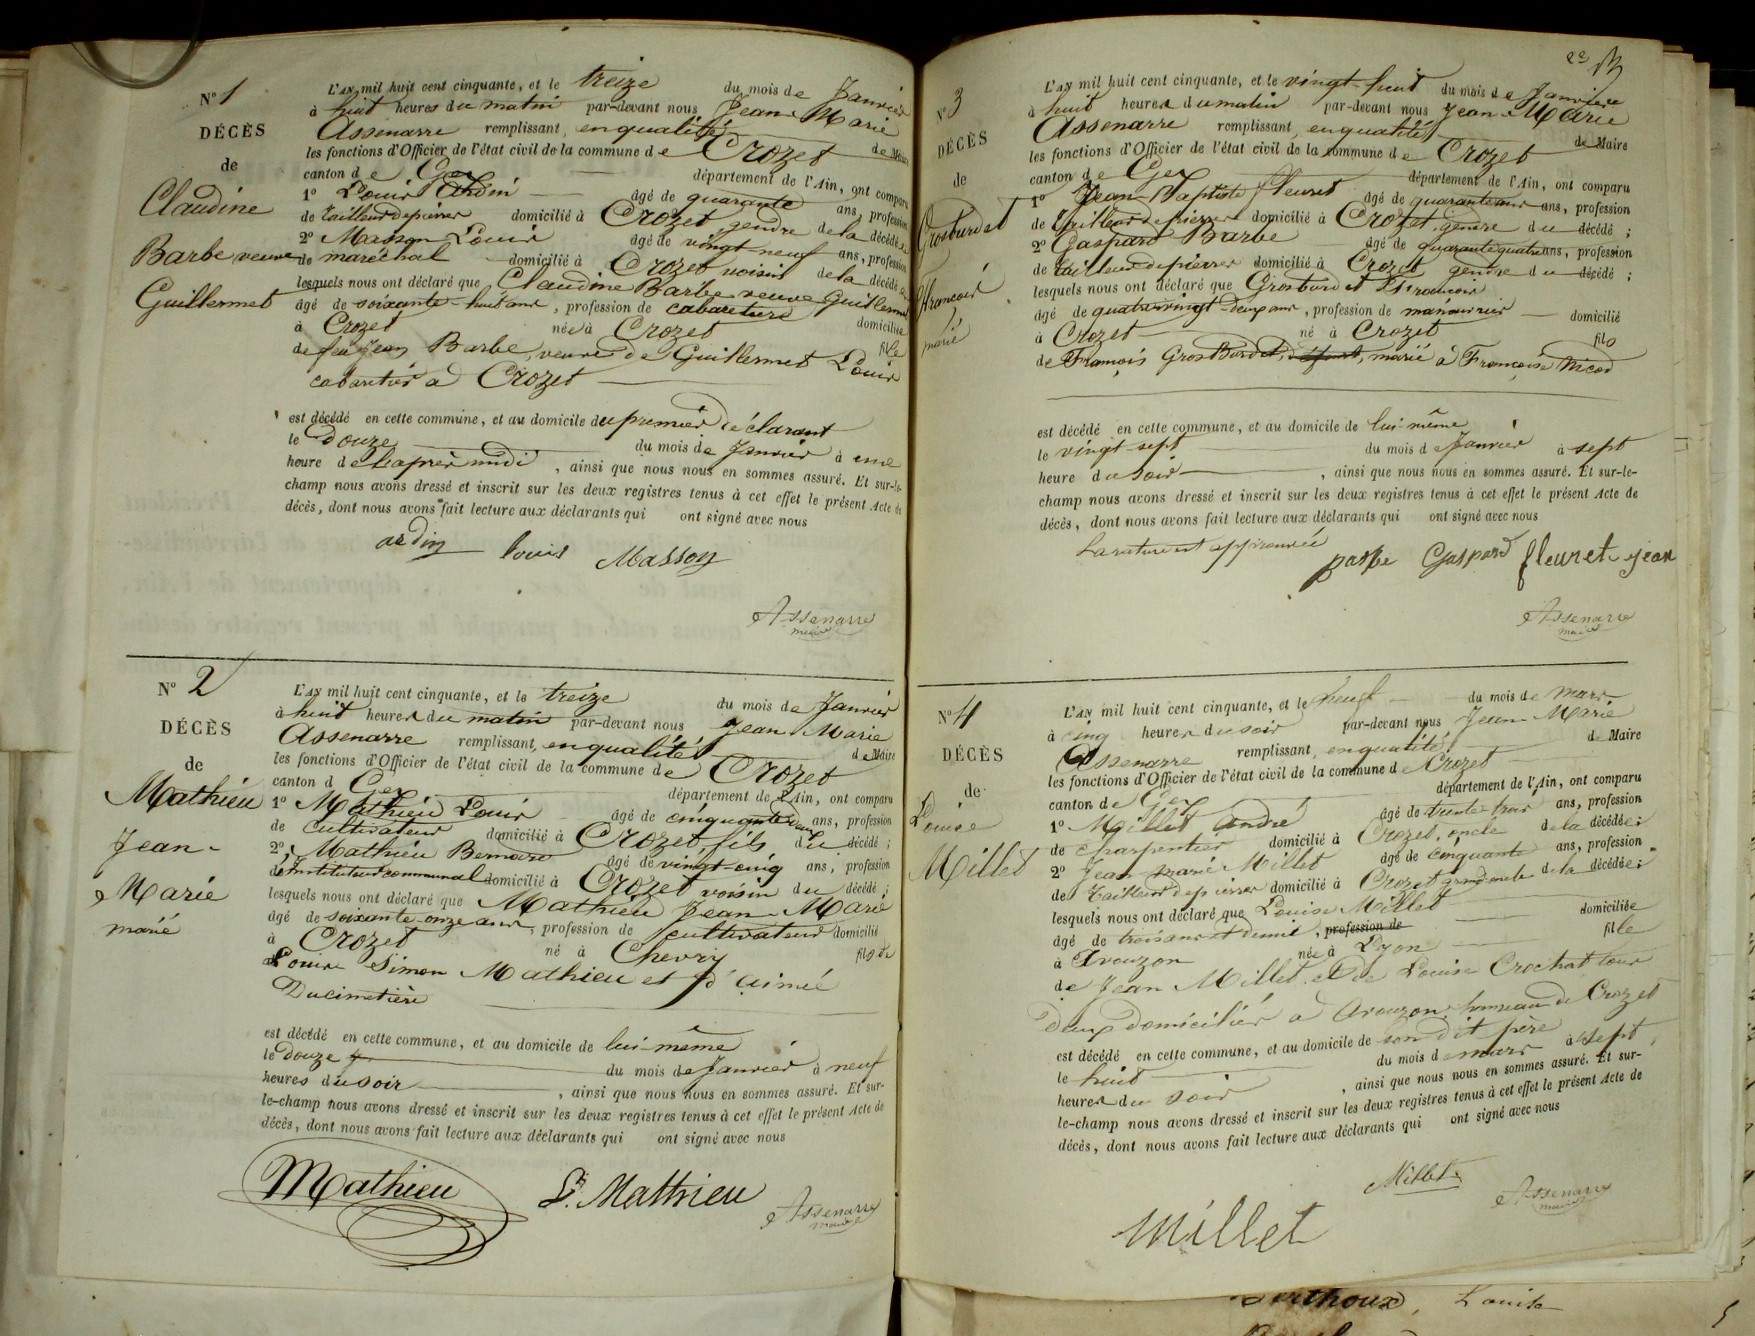 N° 1
DÉCÈS
de
Claudine
Barbe veuve
Guillermet
L'AN mil huit cent cinquante, et le treize du mois de Janvier
à huit heures du matin par-devant nous Jean Marie
Assenarre remplissant, en qualité de Maire
les fonctions d'Officier de l'état civil de la commune de Crozet
canton de Gex département de l'Ain, ont comparu
1° Louis Ardin agé de quarante ans, profession
de tailleur de pierres domicilié à Crozet, gendre de la décédée
2° Masson Louis agé de vingt-neuf ans, profession
de maréchal domicilié à Crozet voisin de la décédée
lesquels nous ont déclaré que Claudine Barbe veuve Guillermet
agé de soixante-huit ans, profession de cabaretière domiciliée
à Crozet née à Crozet fille
de feu Jean Barbe, veuve de Guillermet Louis
cabaretier à Crozet
est décédé en cette commune, et au domicile du premier déclarant
le douze du mois de Janvier à une
heure de l'après midi, ainsi que nous nous en sommes assuré. Et sur-le-
champ nous avons dressé et inscrit sur les deux registres tenus à cet effet le présent Acte de
décès, dont nous avons fait lecture aux déclarants qui ont signé avec nous
ardin louis Masson
Assenarre
maire
N° 2
DÉCÈS
de
Mathieu
Jean-
Marie
marié
L'AN mil huit cent cinquante, et le treize du mois de Janvier
à huit heures du matin par-devant nous Jean Marie
Assenarre remplissant, en qualité de Maire
les fonctions d'Officier de l'état civil de la commune de Crozet
canton d Gex département de l'Ain, ont comparu
1° Mathieu Louis agé de cinquante deux ans, profession
de cultivateur domicilié à Crozet, fils du décédé ;
2° Mathieu Bernard agé de vingt-cinq ans, profession
d'Instituteur communal domicilié à Crozet voisin du décédé ;
lesquels nous ont déclaré que Mathieu Jean-Marie
agé de soixante-onze ans, profession de cultivateur domicilié
à Crozet né à Chevry fils de
Louis Simon Mathieu et d'aimée
Ducimetière
est décédé en cette commune, et au domicile de lui-même
le douze du mois de Janvier à neuf
heures du soir, ainsi que nous nous en sommes assuré. Et sur-
le-champ nous avons dressé et inscrit sur les deux registres tenus à cet effet le présent Acte de
décès, dont nous avons fait lecture aux déclarants qui ont signé avec nous
Mathieu Ls. Mathieu
Assenarre
maire
N° 3
DÉCÈS
de
Grosburdet
François
marié
L'AN mil huit cent cinquante, et le vingt-huit du mois de Janvier
à huit heures du matin par-devant nous Jean-Marie
Assenarre remplissant, en qualité de Maire
les fonctions d'Officier de l'état civil de la commune de Crozet
canton de Gex département de l'Ain, ont comparu
1° Jean Baptiste fleuret agé de quarante ans ans, profession
de tailleur de pierres domicilié à Crozet, gendre du décédé ;
2° Gaspard Barbe agé de quarante quatre ans, profession
de tailleur de pierres domicilié à Crozet gendre du décédé ;
lesquels nous ont déclaré que Grosburdet François
agé de quatrevingt-deux ans, profession de manouvrier domicilié
à Crozet né à Crozet fils
de François GrosBurdet, défunt, marié à Françoise Nicod
est décédé en cette commune, et au domicile de lui-même
le vingt sept du mois de Janvier à sept
heure du soir, ainsi que nous nous en sommes assuré. Et sur-le-
champ nous avons dressé et inscrit sur les deux registres tenus à cet effet le présent Acte de
décès, dont nous avons fait lecture aux déclarants qui ont signé avec nous
La rature est approuvée
barbe Gaspard fleuret jean
Assenarre
maire
N° 4
DÉCÈS
de
Louise
Millet
L'AN mil huit cent cinquante, et le neuf du mois de mars
à cinq heures du soir par-devant nous Jean-Marie
Assenarre remplissant, en qualité de Maire
les fonctions d'Officier de l'état civil de la commune de Crozet
canton de Gex département de l'Ain, ont comparu
1° Millet André agé de trente-trois ans, profession
de charpentier domicilié à Crozet, oncle de la décédée ;
2° Jean marie Millet agé de cinquante ans, profession
de tailleur de pierres domicilié à Crozet grand oncle de la décédée ;
lesquels nous ont déclaré que Louise Millet
agé de trois ans et demi, profession de domiciliée
à Avouzon née à Lyon fille
de Jean Millet et de Louise Crochat tous
deux domiciliés à Avouzon, hameau de Crozet
est décédé en cette commune, et au domicile de son dit père
le huit du mois de mars à sept
heures du soir, ainsi que nous nous en sommes assuré. Et sur-
le-champ nous avons dressé et inscrit sur les deux registres tenus à cet effet le présent Acte de
décès, dont nous avons fait lecture aux déclarants qui ont signé avec nous
Millet
Assenarre
maire
Millet
Berthoud, Louise